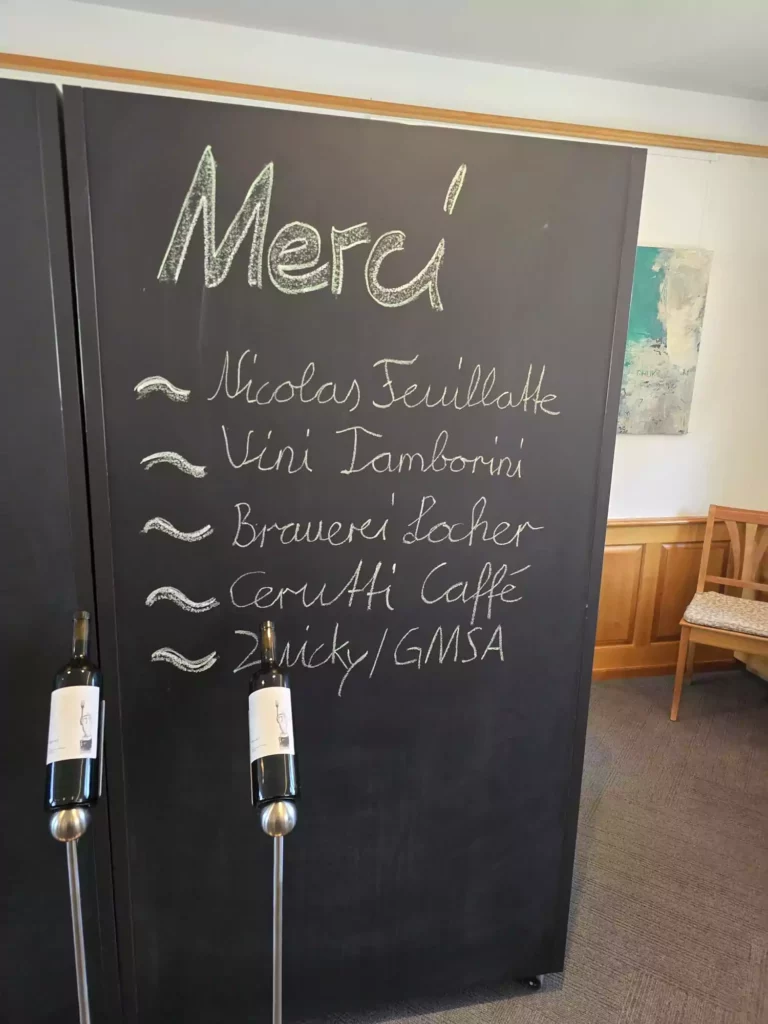 Merci
~ Nicolas Feuillatte
~ Vini Tamborini
~ Brauerei Locher
~ Cerutti Caffé
~ Zwicky/GMSA